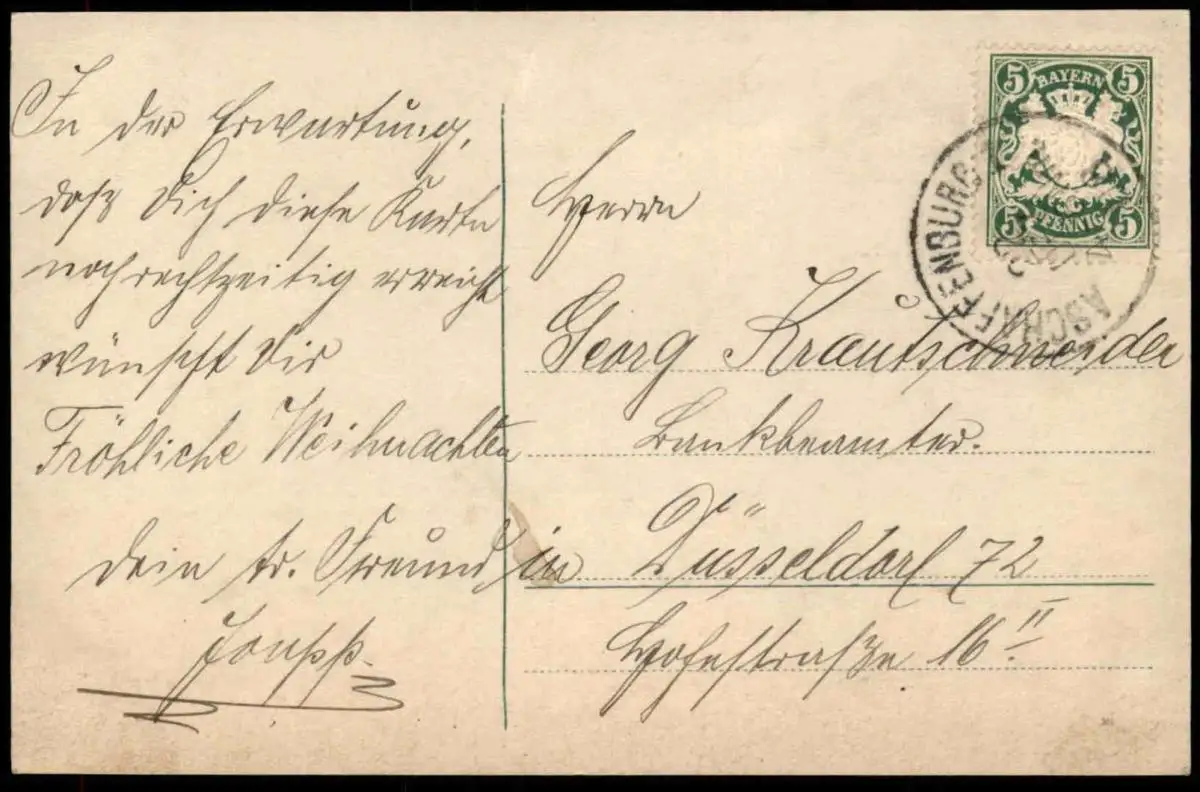 In der Erwartung,
daß Dich diese Karte
noch rechtzeitig erreicht
wünscht Dir
Fröhliche Weihnachten
Dein tr. Freund
5 BAYERN 5
5 PFENNIG 5
ASCHAFFENBURG
Herrn
Georg Krautschneider
Bankbeamter.
in Düsseldorf 72
16 II